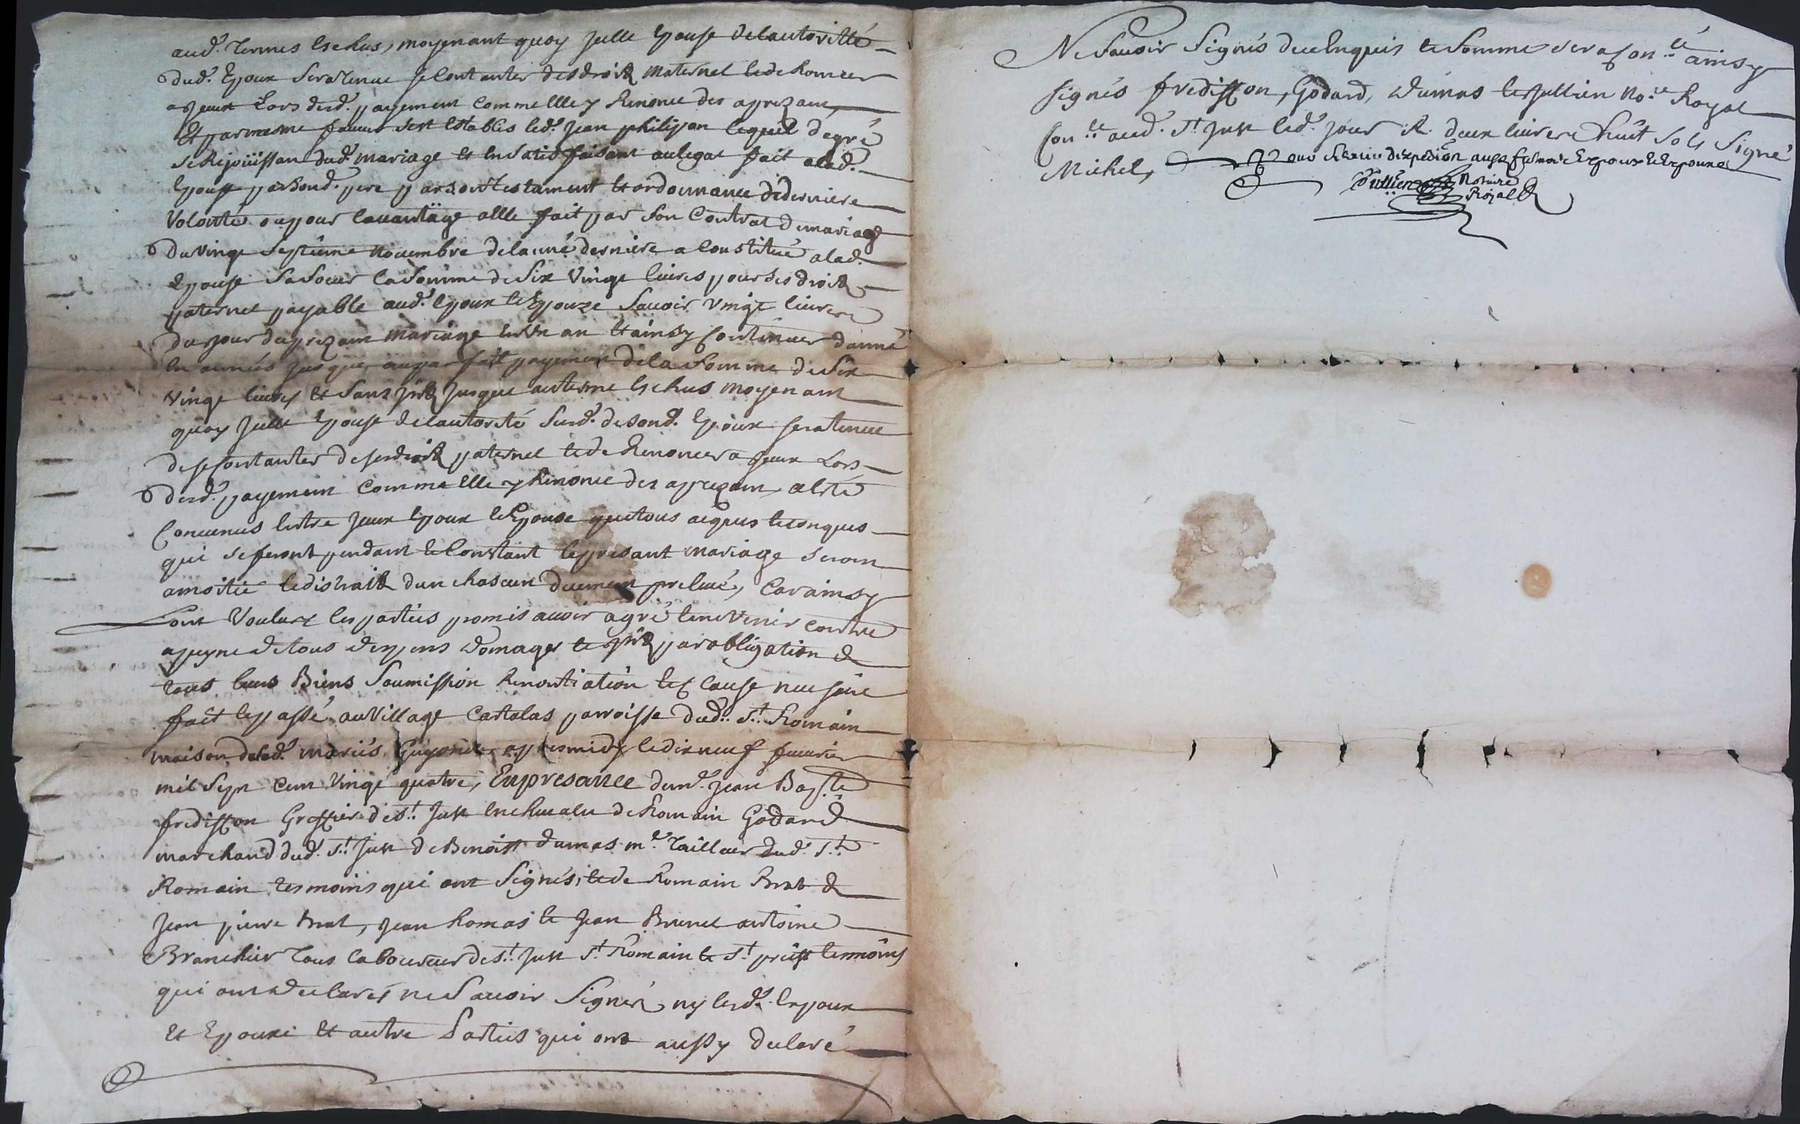 aud. termes Eschus, moyenant quoy Jelle Epouse delautoritté
dud. Epoux sera tenue se Contanter desdroits maternel Et de Renoncer
a yceux Lors desd. payement Comme Elle y Renonce des aprezant,
Et par mesme faveur sest Establis led. Jean philipon lequel de gré
se Rejoüissan dud. mariage et En satisfaisant au legat fait alad.
Epouse par sond. pere par son testament et ordonnance de derniere
volonté ou pour lavantage a Elle fait par son Contrat de mariage
Du vingt septieme novembre de lanné derniere a Constitué alad.
Epouse sa soeur la somme de six vingt livres pour ses droits
paternel payable aud. Epoux Et Epouze Savoir vingt livres
du jour du prezant mariage En un an Et ainsy Continuer danné
En annés jusques au parfait payement de la somme de six
vingt livres et sans jnts jusque au terme Eschus moyenant
quoy Jelle Epouse de lautorité susd. de sond. Epoux sera tenue
de se Contanter de ses droits paternel Et de Renoncer a yceux Lors
desd. payement Comme Elle y Renonce des aprezant, a Esté
Convenus Entre yceux Epoux Et Epouse que tous aequis Et Conques
qui se feront pendant Et Constant le presant mariage seront
amoitié Les distraits dun chascun duement prelevé, Car ainsy
lont Voulus les parties promis avoir agré Et ne venir contre
a peyne de tous depens domages Et jnts par obligation de
tous leurs Biens Soumission Renontiation Et Clause necessaire
fait Et passé au village Castalas parroisse dud. St. Romain
maison dud. mariés Guyonnet apresmidy le dixneuf fevrier
mil sept cent vingt quatre, En presance de me. Jean Bapte.
fredisson Greffier de St. Just En chevalu de Romain Godard
marchand dud. St. Just de Benoist dumas me. Tailleur dud. St.
Romain tesmoins qui ont Signés, Et de Romain Brat de
Jean pierre Brat, Jean Romas Et Jean Brunel antoine
Branchier tous laboureur de St. Just St. Romain Et St. priest temoins
qui ont declarés ne Savoir Signer ny lesd. Epoux
Et Epouze Et autre Parties qui ont aussy declaré
Ne Savoir Signés de ce Enquis Et Somme sera Conlé. ainsy
signés fredisson, Godard, Dumas Et Jullien nore. Royal
Conlé. aud. St. Just led. jour R. deux livres huit sols Signé
Michel,
Jullien Notaire
Royal